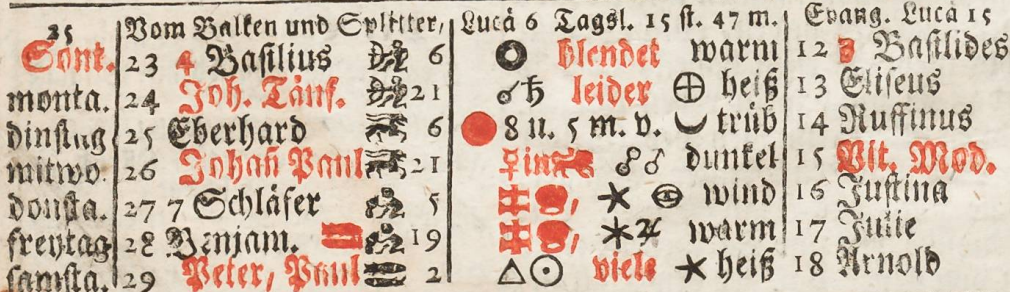 25 Vom Balken und Splitter, Lucä 6 Tagsl. 15 st. 47 m. Evang. Lucä 15
Sont. 23 4 Basilius 6 blendet warm 12 3 Basilides
monta. 24 Joh. Täuf. 21 ☌♄ leider ⊕ heiß 13 Eliseus
dinstag 25 Eberhard 6 8 u. 5 m. v. trüb 14 Ruffinus
mitwo. 26 Johañ Paul 21 ♀in ☍♂ dunkel 15 Vit. Mod.
donsta. 27 7 Schläfer 5 wind 16 Justina
freytag 28 Benjam. 19 ⚹♃ warm 17 Julie
samsta. 29 Peter, Paul 2 △☉ viele ⚹ heiß 18 Arnold